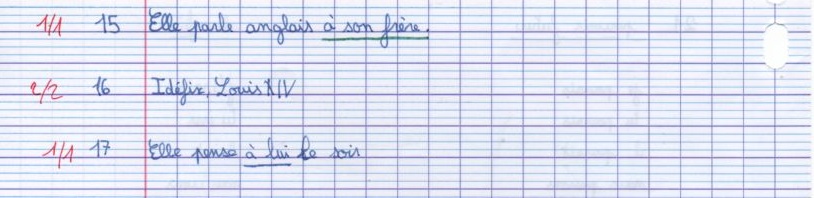 1/1 15 Elle parle anglais à son frère.
2/2 16 Idéfix, Louis XIV
1/1 17 Elle pense à lui le soir